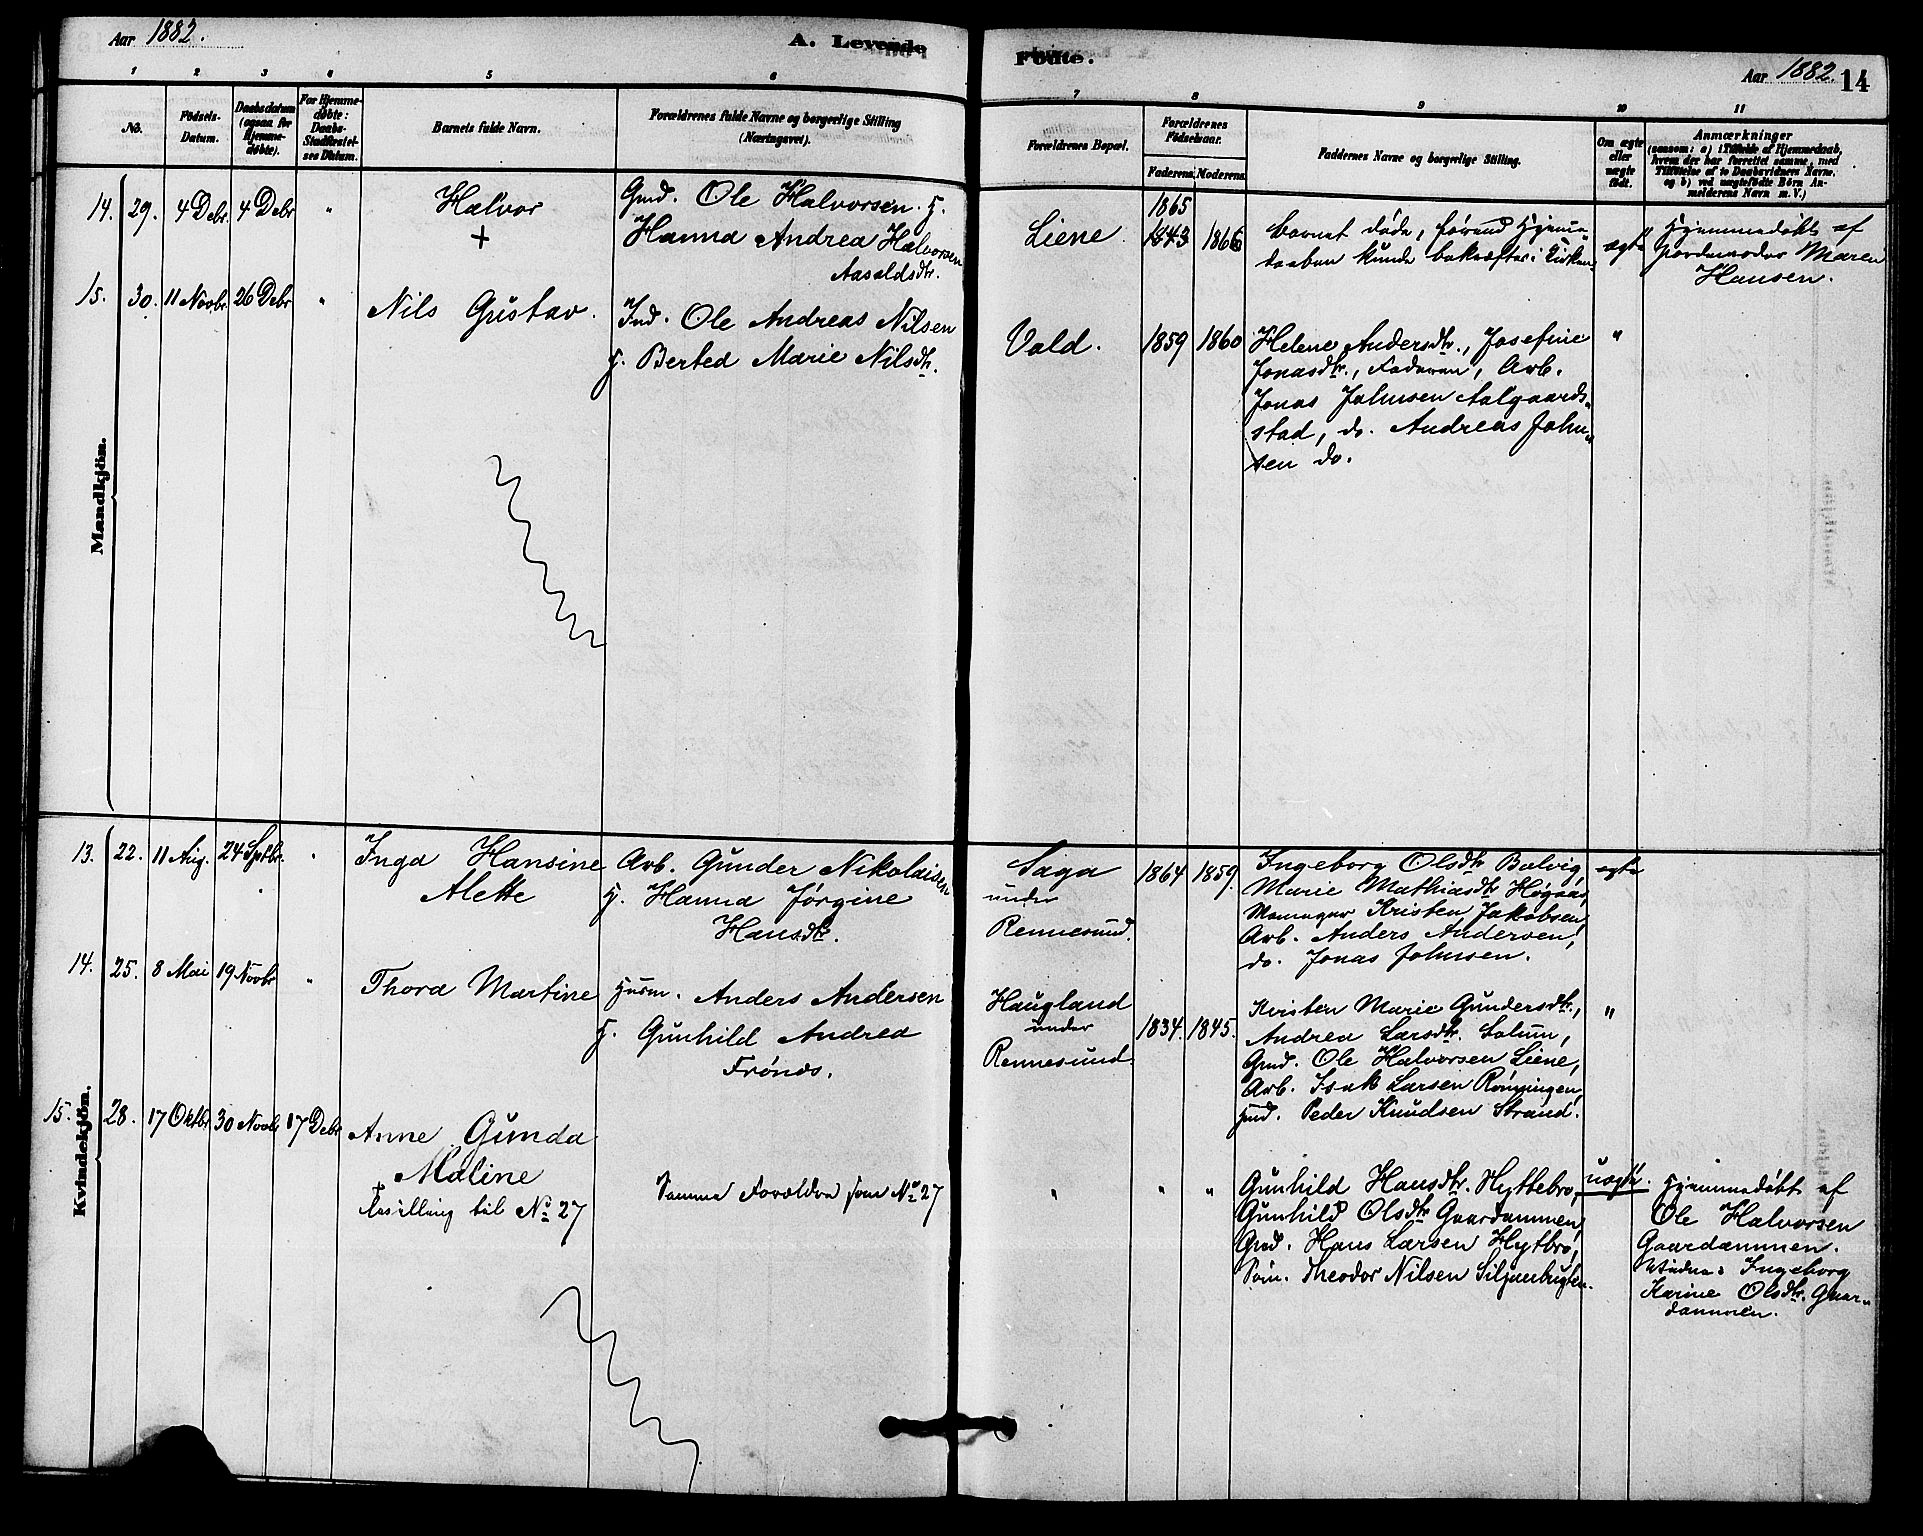 Aar 1882.
A. Levende
Fødte.
Aar 1882.
14
1 2 3 4 5 6
7 8 9 10 11
No.
Fødsels-
Datum.
Daabsdatum
(ogsaa for
Hjemme-
døbte).
For Hjemme-
døbte:
Daabs-
Stadfæstel-
ses Datum.
Barnets fulde Navn.
Forældrenes fulde Navne og borgerlige Stilling
(Næringsvei).
Forældrenes Bopæl.
Forældrenes
Fødselsaar.
Faderens. Moderens.
Faddernes Navne og borgerlige Stilling.
Om ægte
eller
uægte
født.
Anmærkninger
(saasom: a) i Tilfælde af Hjemmedaab,
hvem der har forrettet samme, med
Tilføielse af to Daabsvidners Navne,
og b) ved uægtefødte Børn An-
melderens Navn m. V.)
Mandkjön.
14. 29. 4 Debr. 4 Debr "
Halvor
+
Gmd. Ole Halvorsen. H.
Hanna Andrea Halvorsen
Aasoldsdtr.
Liene.
1865
1843 1866
barnet døde, førend Hjemme-
daaben kunde bekræftes i Kirken.
ægte
Hjemmedøbt af
Jordemoder Maren
Hansen.
15. 30. 11 Novbr. 26 Debr "
Nils Gustav.
Ind. Ole Andreas Nilsen
H. Berted Marie Nilsdtr.
Vold.
1859 1860
Helene Andersdtr., Josefine
Jonasdtr., Faderen, Arb.
Jonas Johnsen Aalgaards-
stad, do. Andreas John-
sen do.
"
Kvindekjön.
13. 22. 11 Aug. 24 Sptbr. "
Inga Hansine
Alette
Arb. Gunder Nikolaisen
H. Hanna Jørgine
Hansdtr.
Saga
under
Rennesund.
1864 1859.
Ingeborg Olsdtr Bolvig,
Marie Mathiasdtr Høgaas,
Kristen Jakobsen,
Arb. Anders Andersen,
do. Jonas Johnsen.
ægte
14. 25. 8 Mai 19 Novbr "
Thora Martine
Husm. Anders Andersen
H. Gunhild Andrea
Frønds.
Haugland
under
Rennesund.
1834. 1845.
Kristen Marie Gundersdtr.,
Andrea Larsdtr. Solum,
Gmd. Ole Halvorsen Liene,
Arb. Isak Larsen Rønningen,
Gmd. Peder Knudsen Strand.
"
15. 28. 17 Oktbr 30 Novbr 17 Debr
Anne Gunda
Maline
Tvilling til No. 27
Samme Forældre som No. 27
" " "
Gunhild Hansdtr. Hyttebro,
Gunhild Olsdtr Gaardammen,
Gmd. Hans Larsen Hytbro,
Søm. Theodor Nilsen Siljanbugten.
uægte.
Hjemmedøbt af
Ole Halvorsen
Gaardammen.
Vidne: Ingeborg
Karine Olsdtr. Gaar-
dammen.